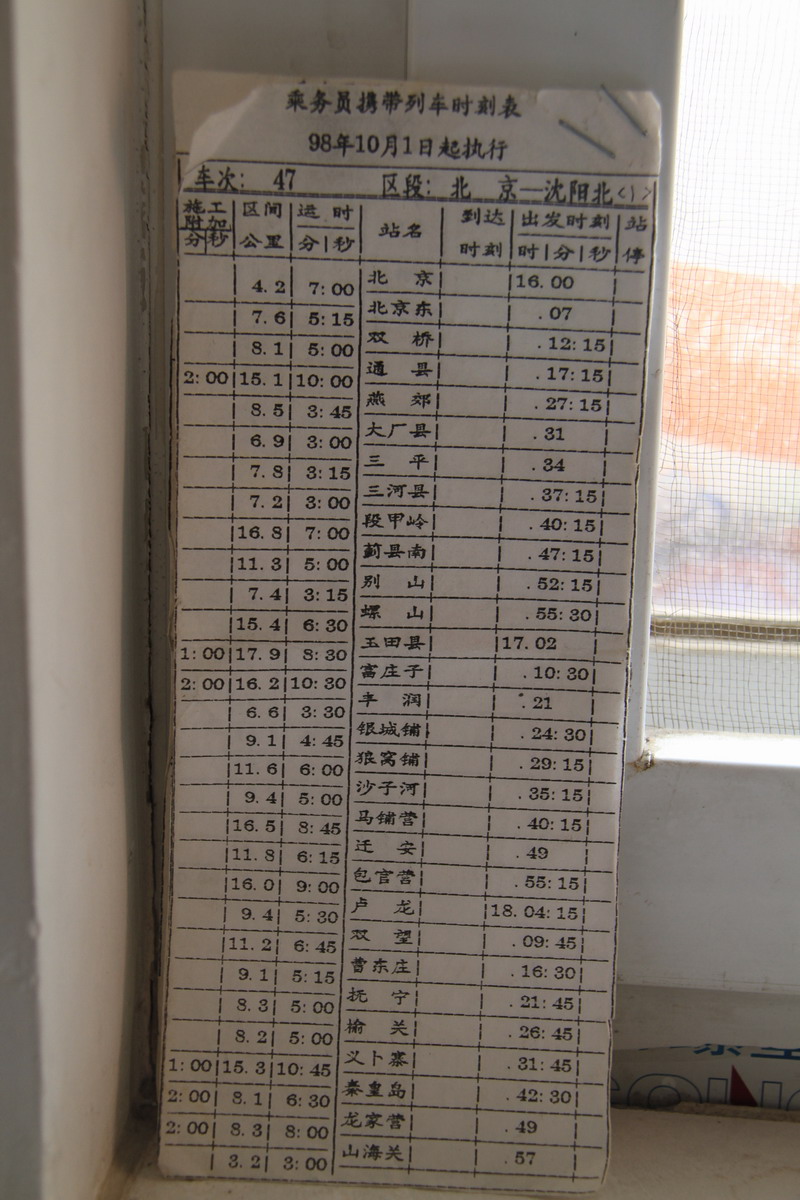 乘务员携带列车时刻表
98年10月1日起执行
车次: 47 区段: 北 京—沈阳北<1>
施工附加 区间 运 时 站名 到达 出发时刻 站
分 秒 公里 分 秒 时刻 时 分 秒 停
4.2 7:00 北 京 16.00
7.6 5:15 北京东 .07
8.1 5:00 双 桥 .12:15
2:00 15.1 10:00 通 县 .17:15
8.5 3:45 燕 郊 .27:15
6.9 3:00 大厂县 .31
7.8 3:15 三 平 .34
7.2 3:00 三河县 .37:15
16.8 7:00 段甲岭 .40:15
11.3 5:00 蓟县南 .47:15
7.4 3:15 别 山 .52:15
15.4 6:30 螺 山 .55:30
1:00 17.9 8:30 玉田县 17.02
2:00 16.2 10:30 富庄子 .10:30
6.6 3:30 丰 润 .21
9.1 4:45 银城铺 .24:30
11.6 6:00 狼窝铺 .29:15
9.4 5:00 沙子河 .35:15
16.5 8:45 马铺营 .40:15
11.8 6:15 迁 安 .49
16.0 9:00 包官营 .55:15
9.4 5:30 卢 龙 18.04:15
11.2 6:45 双 望 .09:45
9.1 5:15 曹东庄 .16:30
8.3 5:00 抚 宁 .21:45
8.2 5:00 榆 关 .26:45
1:00 15.3 10:45 义卜寨 .31:45
2:00 8.1 6:30 秦皇岛 .42:30
2:00 8.3 8:00 龙家营 .49
3.2 3:00 山海关 .57